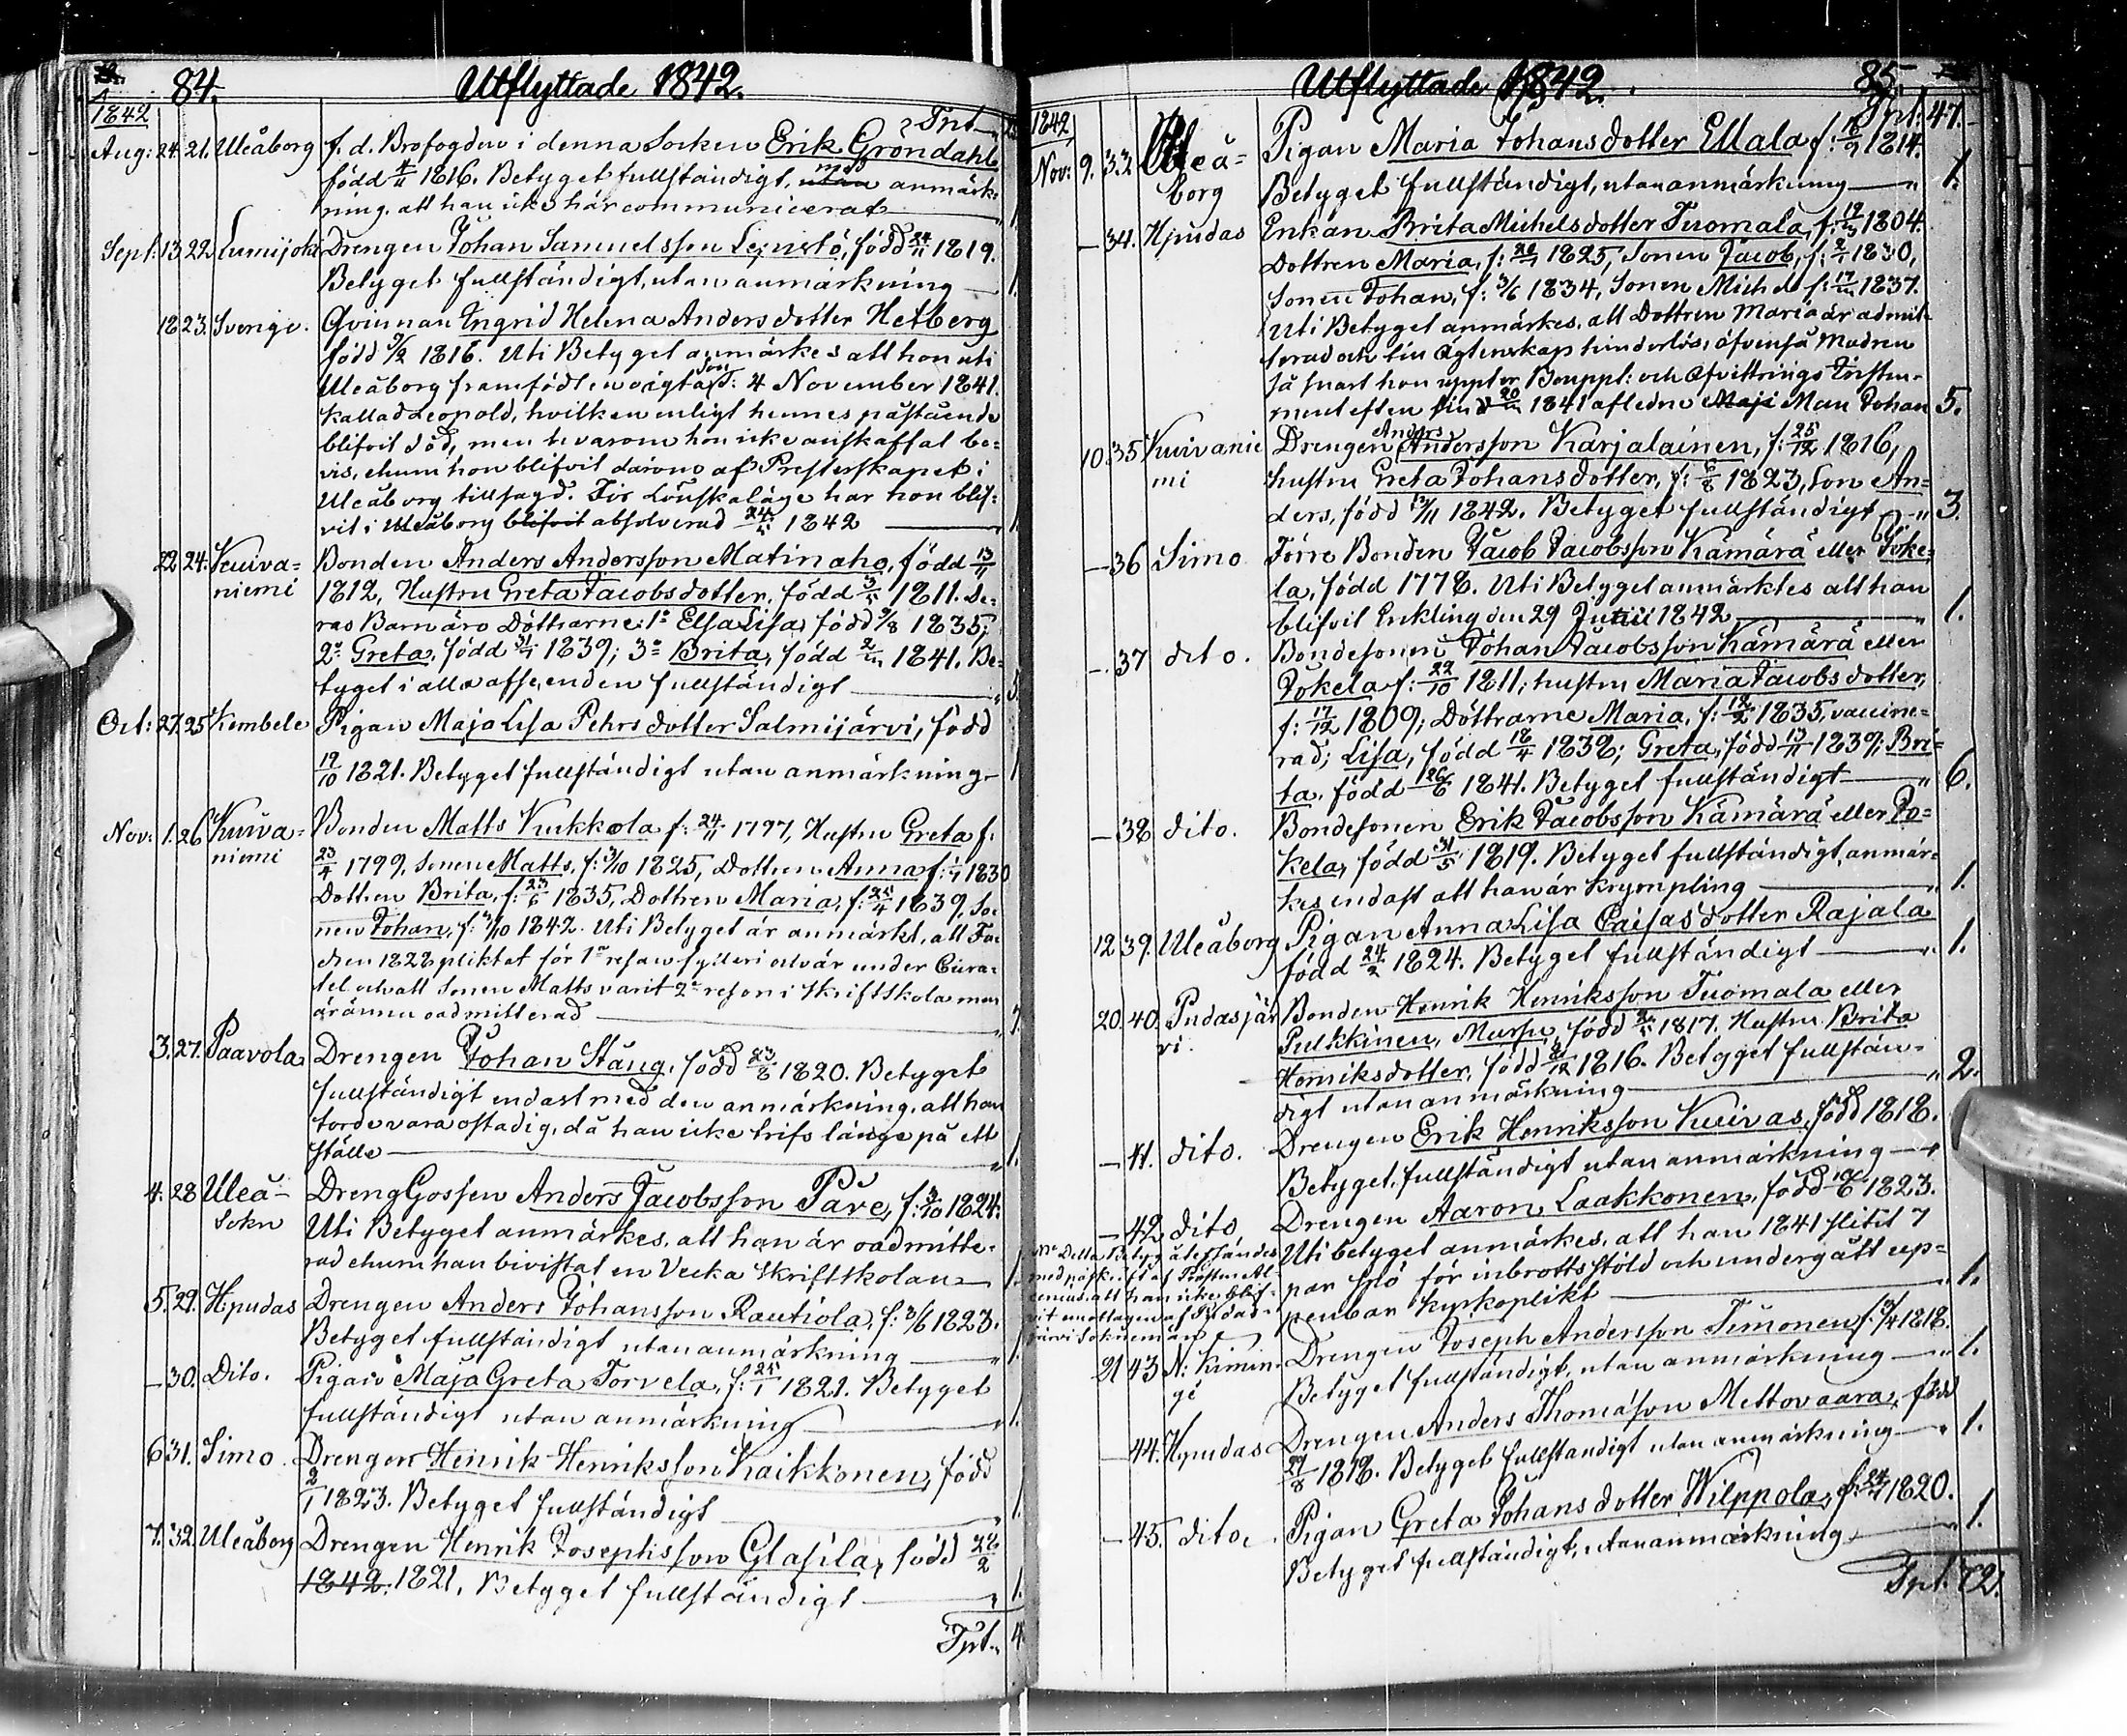 84.
Utflyttade 1842.
1842
Trst.
Aug: 24. 21. Uleåborg f. d. Brofogden i denna Socken Erik Gröndahl
född 4/11 1816. Betyget fullständigt, utan med anmärk-
ning, att han icke här communicerat
Sept: 13. 22. Lumijoki Drengen Johan Samuelsson född 1819.
Betyget fullständigt, utan anmärkning
18 23. Sverige. Qvinnan Ingrid Helena Andersdotter Hetberg
född 9/2 1816. Uti Betyget anmärkes att hon uti
Uleåborg framfödt en oägta Son d: 4 November 1841.
kallad Leopold, hvilken enligt hennes påstående
blifvit död, men hvarom hon icke anskaffat be-
vis, ehuru hon blifvit därom af Presterskapet i
Uleåborg tillsagd. För Lönskaläge har hon blif-
vit i Uleåborg blifvit absolverad 1842
22 24. Kuiva- Bonden Anders Andersson Matinaho, född 13/11
niemi 1812, Hustru Greta Jacobsdotter, född 3/5 1811. De-
ras Barn äro Döttrarne: 1o Elsa Lisa, född 9/8 1835;
2o Greta, född 1839; 3o Brita, född 1841. Be-
tyget i alla afseenden fullständigt 5.
Oct: 27. 25 Kembele Pigan Maja Lisa Pehrsdotter Salmijärvi, född
19/10 1821. Betyget fullständigt utan anmärkning 1
Nov: 1. 26 Kuiva- Bonden Matts Kukkola f: 24/11 1797, Hustru Greta f.
niemi 23/4 1799, Sonen Matts, f: 3/10 1825, Dottren Anna f: 1/1 1830
Dottren Brita, f: 23/6 1835, Dottren Maria, f: 25/4 1839, So-
nen Johan, f: 1842. Uti Betyget är anmärkt, att Fa-
dren 1828 pliktat för 1a resan fylleri och är under Cura-
tel och att Sonen Matts varit 2a reson i Skriftskola men
är ännu oadmitterad 7.
3. 27. Paavola Drengen Johan Stång, född 23/8 1820. Betyget
fullständigt endast med den anmärkning, att han
torde vara ostadig, då han icke trifs länge på ett
ställe 1.
4. 28 Uleå- DrengGossen Anders Jacobsson Päve, f: 3/10 1824.
Sokn Uti Betyget anmärkes, att han är oadmitte-
rad ehuru han bivistat en Vecka Skriftskolan 1.
5. 29. H:pudas Drengen Anders Johansson Rautiola, f: 3/6 1823.
Betyget fullständigt utan anmärkning 1.
— 30. Dito. Pigan Maja Greta Torvela, f: 25/1 1821. Betyget
fullständigt utan anmärkning 1.
6 31. Simo. Drengen Henrik Henriksson Kaikkonen, född
2/1 1823. Betyget fullständigt 1.
7. 32. Uleåborg Drengen Henrik Josephsson Glasila, född 22/2
1842. 1821. Betyget fullständigt 1.
Trpt. 4
Utflyttade 1842.
85.
Trpt. 47.
1842
Nov: 9. 33. Uleå- Pigan Maria Johansdotter Ellala f: 1814.
borg Betyget fullständigt, utan anmärkning 1.
— 34. H:pudas Enkan Brita Michelsdotter Tuomala, f: 19/3 1804.
Dottren Maria, f: 1825, Sonen Jacob, f: 1830,
Sonen Johan, f: 3/6 1834, Sonen Michel f: 1837.
Uti Betyget anmärkes, att Dottren Maria är admit-
terad och till Ägtenskap hinderlös, äfvenså Modren
så snart hon uppter Bouppt: och Afvittrings Instru-
ment efter sin d 1841 afledne Maji Man Johan 5.
10. 35 Kuivanie Drengen Anders Andersson Karjalainen, f: 25/12 1816,
mi hustru Greta Johansdotter, f: 1823, Son An-
ders, född 1842. Betyget fullständigt 3.
— 36 Simo Förre Bonden Jacob Jacobsson Kämärä eller Joke-
la, född 1778. Uti Betyget anmärktes att han
blifvit Enkling den 29 1842 1.
— 37 dito. Bondesonen Johan Jacobsson Kämärä eller
Jokela f: 22/10 1811; hustru Maria Jacobsdotter,
f: 17/12 1809; Döttrarne Maria, f: 12/2 1835, vaccine-
rad; Lisa, född 18/4 1838; Greta, född 13/11 1839; Bri-
ta, född 26/6 1841. Betyget fullständigt 6.
— 38 dito. Bondesonen Erik Jacobsson Kämärä eller Jo-
kela, född 31/5 1819. Betyget fullständigt, anmär-
kes endast att han är krympling 1.
12 39. Uleåborg Pigan Anna Lisa Caisasdotter Rajala
född 24/2 1824. Betyget fullständigt 1.
20. 40. Pudasjär Bonden Henrik Henriksson Tuomala eller
vi. Pulkkinen, född 1817. Hustru Brita
Henriksdotter, född 1816. Betyget fullstän-
digt utan anmärkning 2.
— 41. dito. Drengen Erik Henriksson Kuivas, född 1818.
Betyget fullständigt utan anmärkning
— 42 dito Drengen Aaron Laakkonen, född 1823.
Uti betyget anmärkes, att han 1841 slitit 7
par spö för inbrottsstöld och undergått up-
penbar kyrkoplikt 1.
Detta Betyg återsändes
med påskrift af
att han icke blif-
vit emottagen af Pudas-
järvi Soknemän
21 43 N: Kimin- Drengen Joseph Andersson Timonen f: 1818.
ge Betyget fullständigt, utan anmärkning 1.
— 44. H:pudas Drengen Anders Thomasson Mettovaara, född
29/8 1818. Betyget fullständigt utan anmärkning 1.
— 45. dito. Pigan Greta Johansdotter Wilppola, f: 1820.
Betyget fullständigt, utan anmärkning 1.
Trpt. 72.